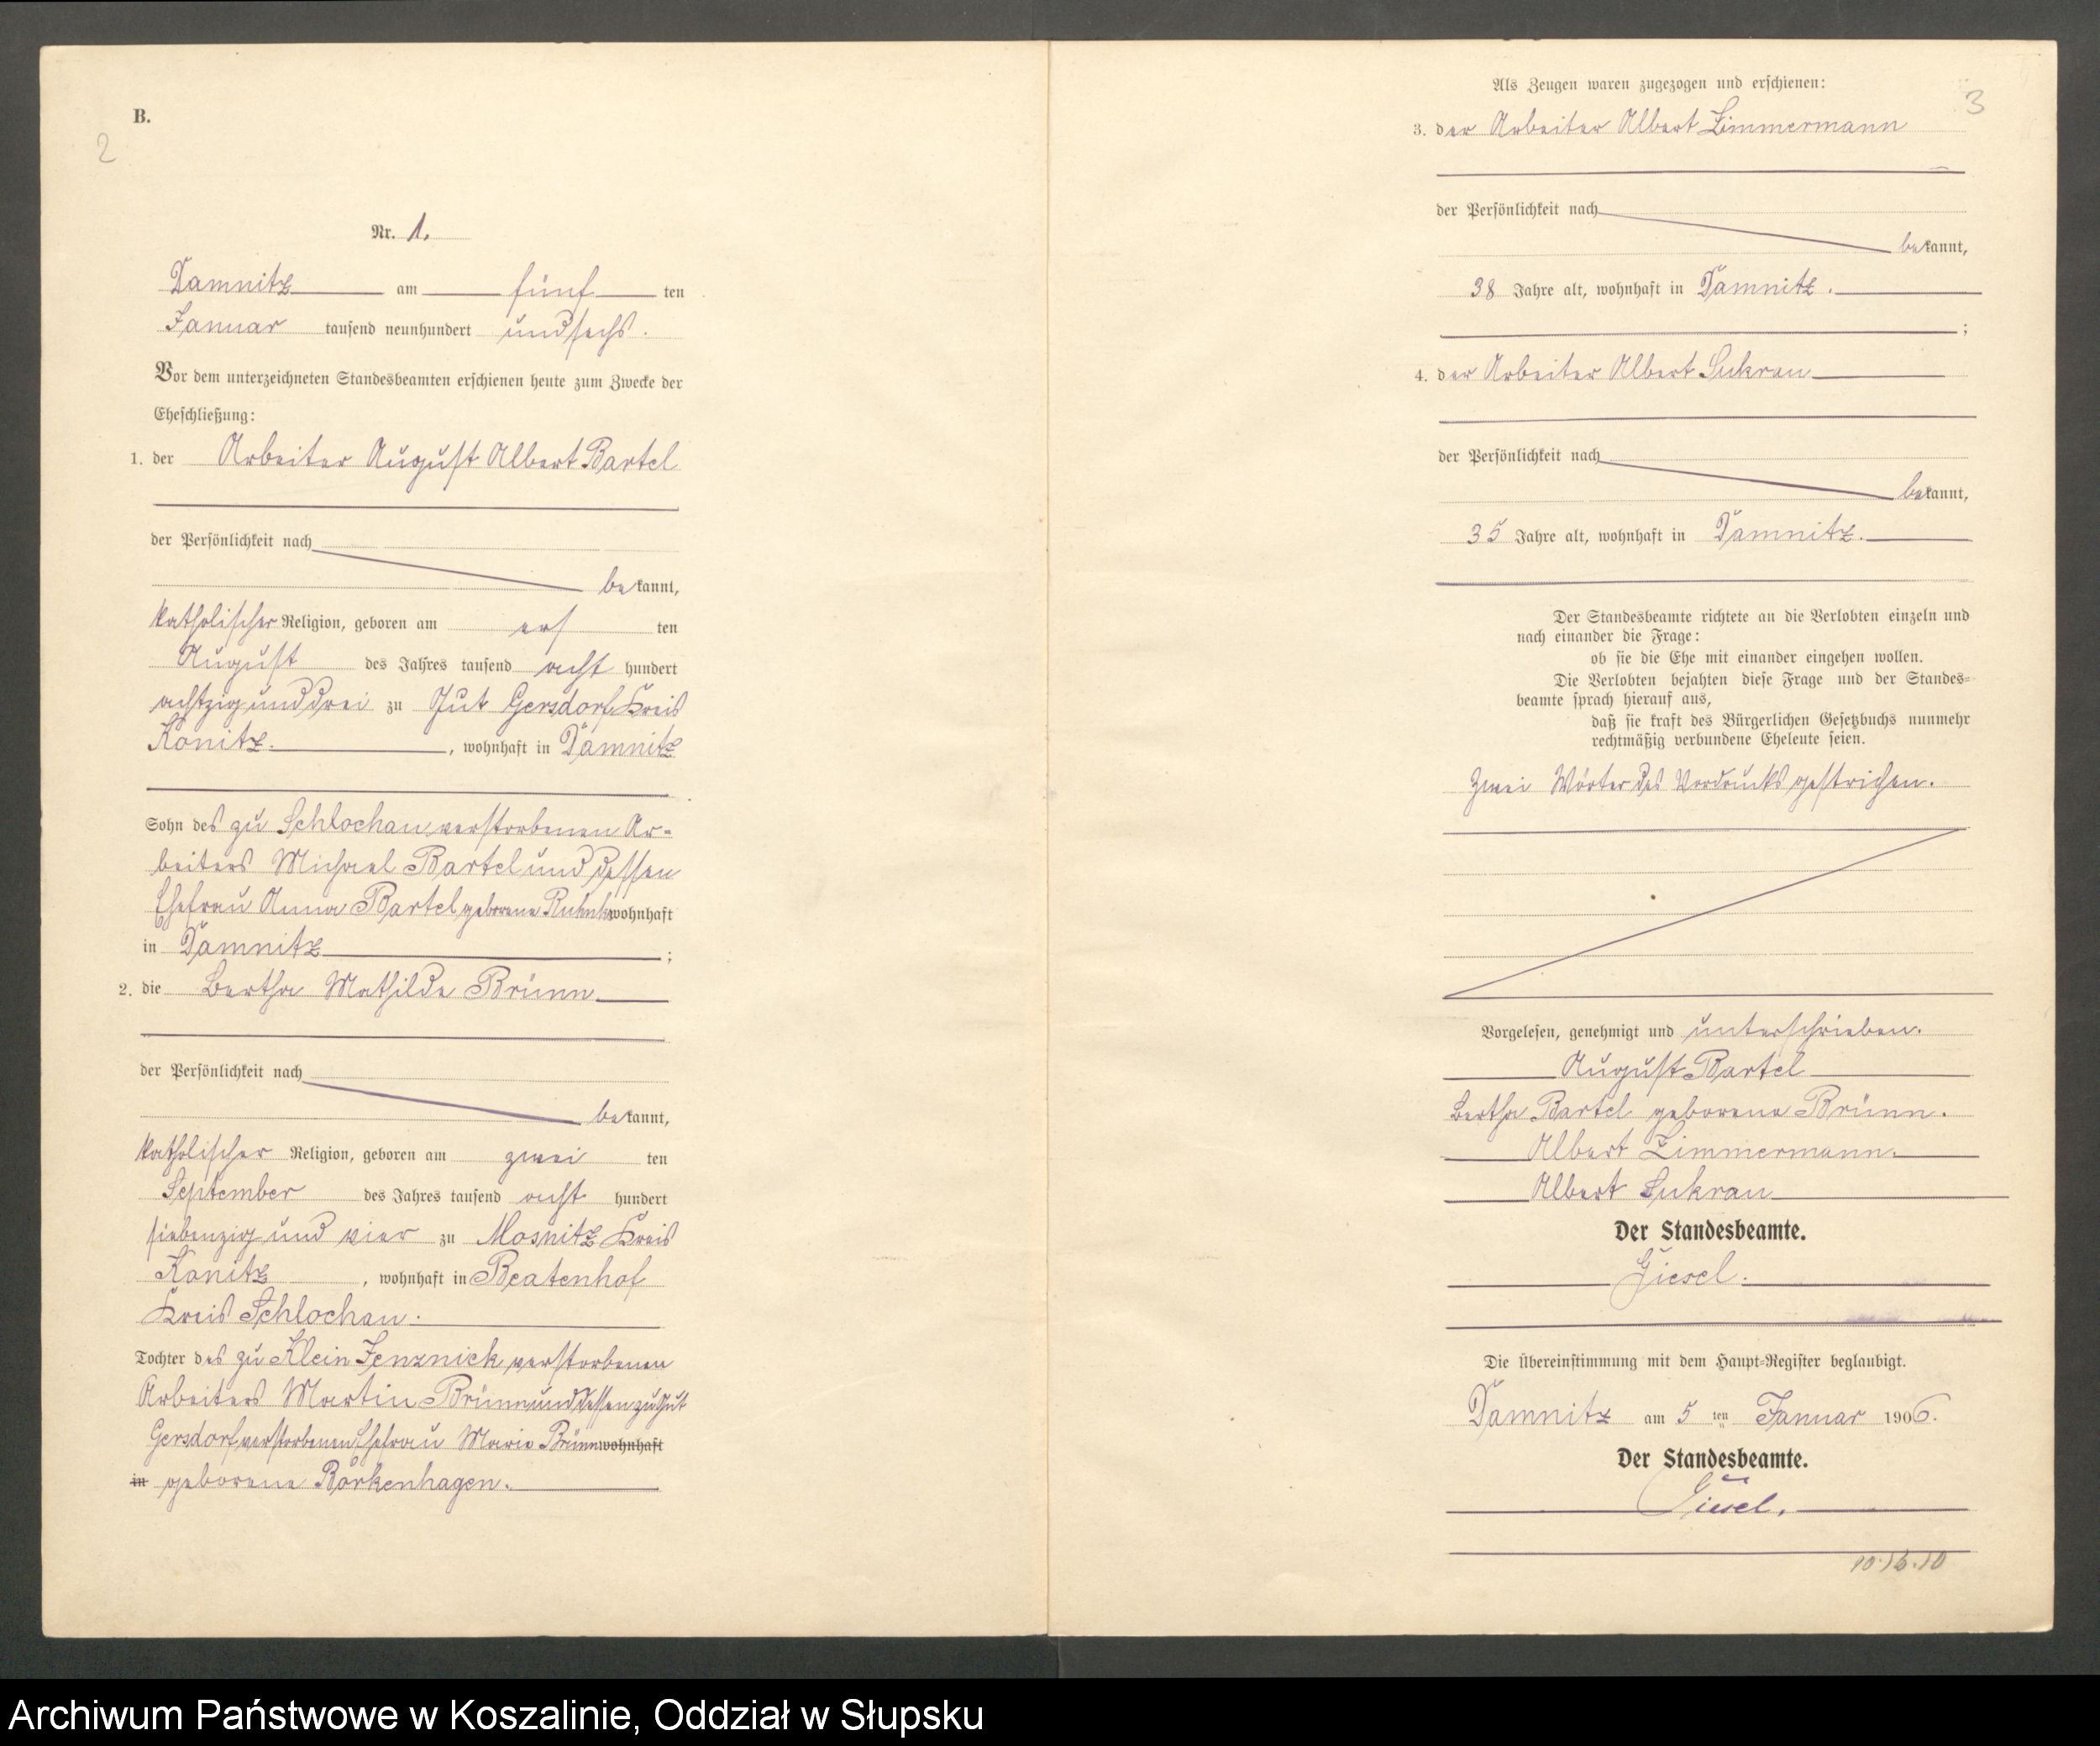 B.
2
Nr. 1.
Damnitz am fünf ten
Januar tausend neunhundert und sechs.
Vor dem unterzeichneten Standesbeamten erschienen heute zum Zwecke der
Eheschließung:
1. der Arbeiter August Albert Bartel
der Persönlichkeit nach
be kannt,
katholischer Religion, geboren am ers ten
August des Jahres tausend acht hundert
achtzig und drei zu Gut Gersdorf Kreis
Konitz. , wohnhaft in Damnitz
Sohn des zu Schlochau verstorbenen Ar-
beiters Michael Bartel und dessen
Ehefrau Anna Bartel geborene wohnhaft
in Damnitz ;
2. die Bertha Mathilde Brünn.
der Persönlichkeit nach
be kannt,
katholischer Religion, geboren am zwei ten
September des Jahres tausend acht hundert
siebenzig und vier zu Mosnitz Kreis
Konitz , wohnhaft in Beatenhof
Kreis Schlochau.
Tochter des zu Klein Jenznick verstorbenen
Arbeiters Martin Brünn und dessen zu Gut
Gersdorf verstorbenen Ehefrau Marie Brünn wohnhaft
in geborene Borkenhagen.
Als Zeugen waren zugezogen und erschienen:
3
3. der Arbeiter Albert Zimmermann
der Persönlichkeit nach
be kannt,
38 Jahre alt, wohnhaft in Damnitz.
;
4. der Arbeiter Albert Sukrau
der Persönlichkeit nach
be kannt,
35 Jahre alt, wohnhaft in Damnitz.
Der Standesbeamte richtete an die Verlobten einzeln und
nach einander die Frage:
ob sie die Ehe mit einander eingehen wollen.
Die Verlobten bejahten diese Frage und der Standes-
beamte sprach hierauf aus,
daß sie kraft des Bürgerlichen Gesetzbuchs nunmehr
rechtmäßig verbundene Eheleute seien.
Zwei Wörter des Vordrucks gestrichen.
Vorgelesen, genehmigt und unterschrieben.
August Bartel
Bertha Bartel geborene Brünn.
Albert Zimmermann.
Albert Sukrau
Der Standesbeamte.
Giesel.
Die Übereinstimmung mit dem Haupt-Register beglaubigt.
Damnitz am 5 ten Januar 1906.
Der Standesbeamte.
Giesel.
Archiwum Państwowe w Koszalinie, Oddział w Słupsku